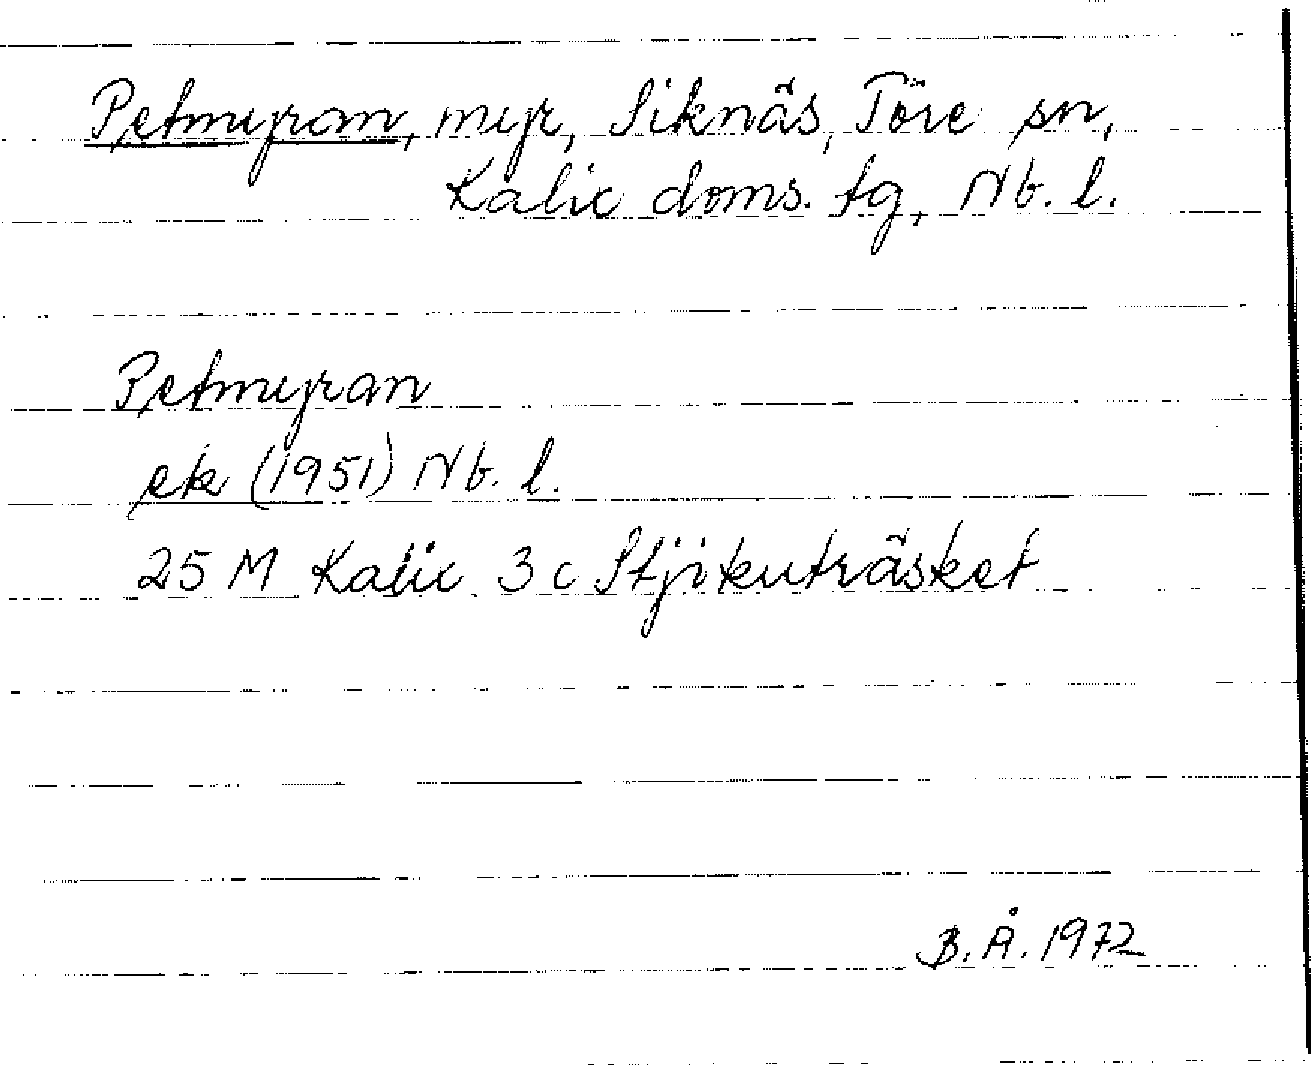 Petmyran, myr, Siknäs, Töre sn,
Kalix doms. tg, Nb. l.
Petmyran
ek (1951) Nb. l.
25 M Kalix 3 c Stjikuträsket
B.Å. 1972